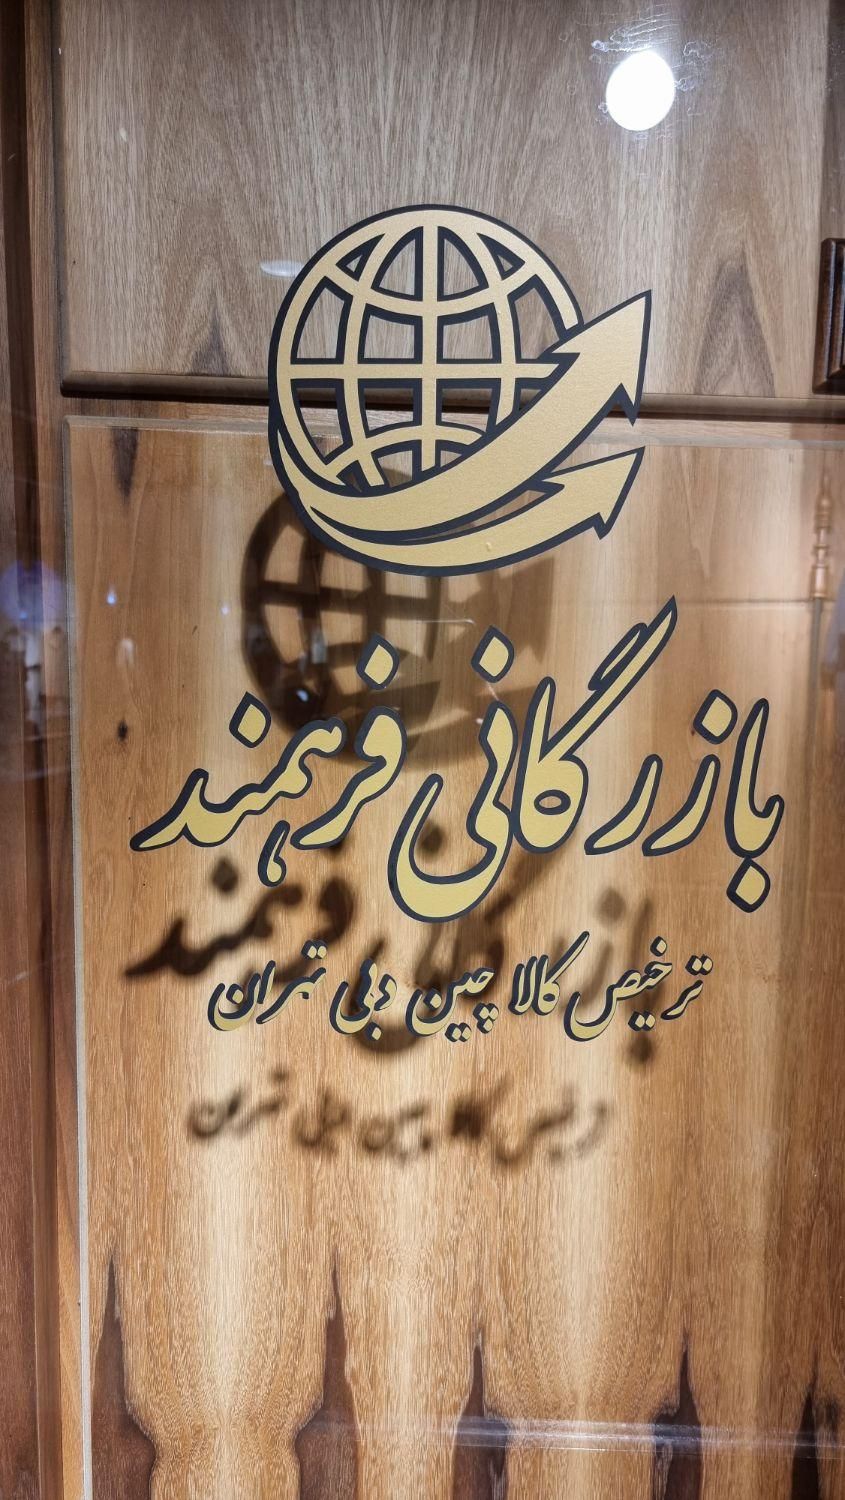 بازرگانی فرهمند
ترخیص کالا چین دبی تهران